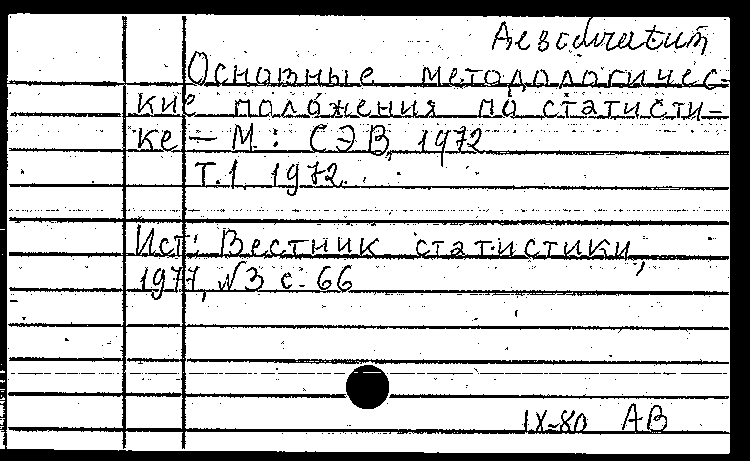 Основные методологичес-
кие положения по статисти-
ке — М.: СЭВ, 1972
Т.1. 1972.
Ист: Вестник статистики,
1977, №3 с. 66
IX-80 АВ